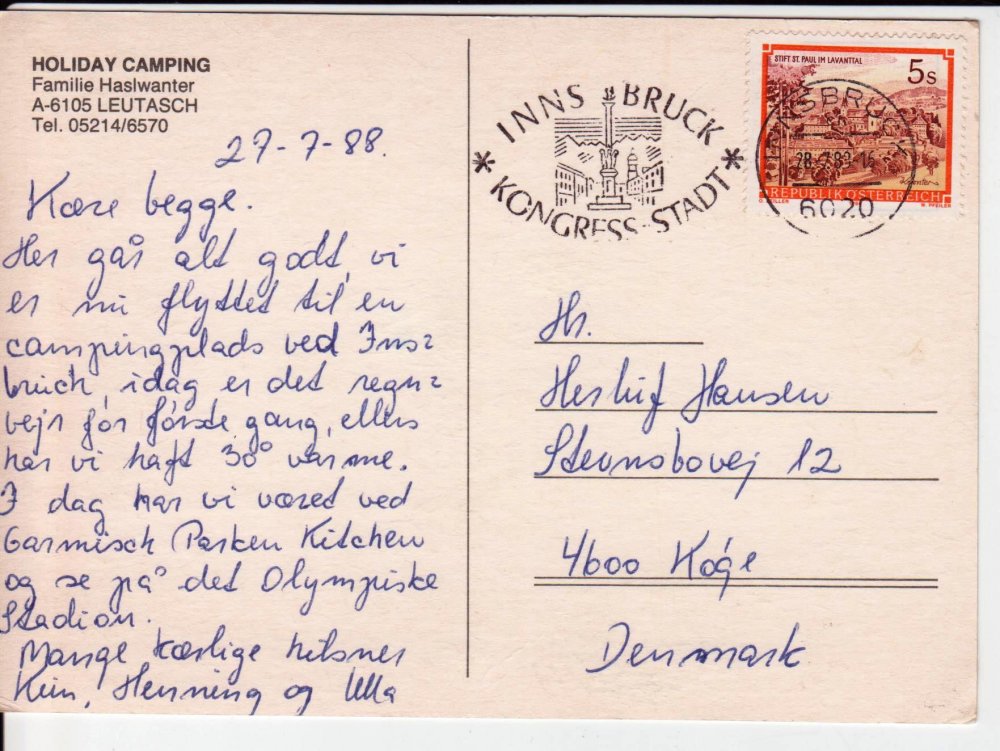 HOLIDAY CAMPING
Familie Haslwanter
A-6105 LEUTASCH
Tel. 05214/6570
27-7-88.
Kære begge.
Her går alt godt, vi
er nu flyttet til en
campingplads ved Ins=
bruck, idag er det regn=
vejr for første gang, ellers
har vi haft 30° varme.
I dag har vi været ved
Garmisch Parken Kitchen
og se på det Olympiske
Stadion.
Mange kærlige hilsner
Kim, Henning og Ulla
INNSBRUCK
* KONGRESS-STADT *
STIFT ST. PAUL IM LAVANTTAL
5s
INNSBRUCK
28.7.88-16
6020
REPUBLIK ÖSTERREICH
Hr.
Herluf Hansen
Stevnsbovej 12
4600 Køge
Denmark